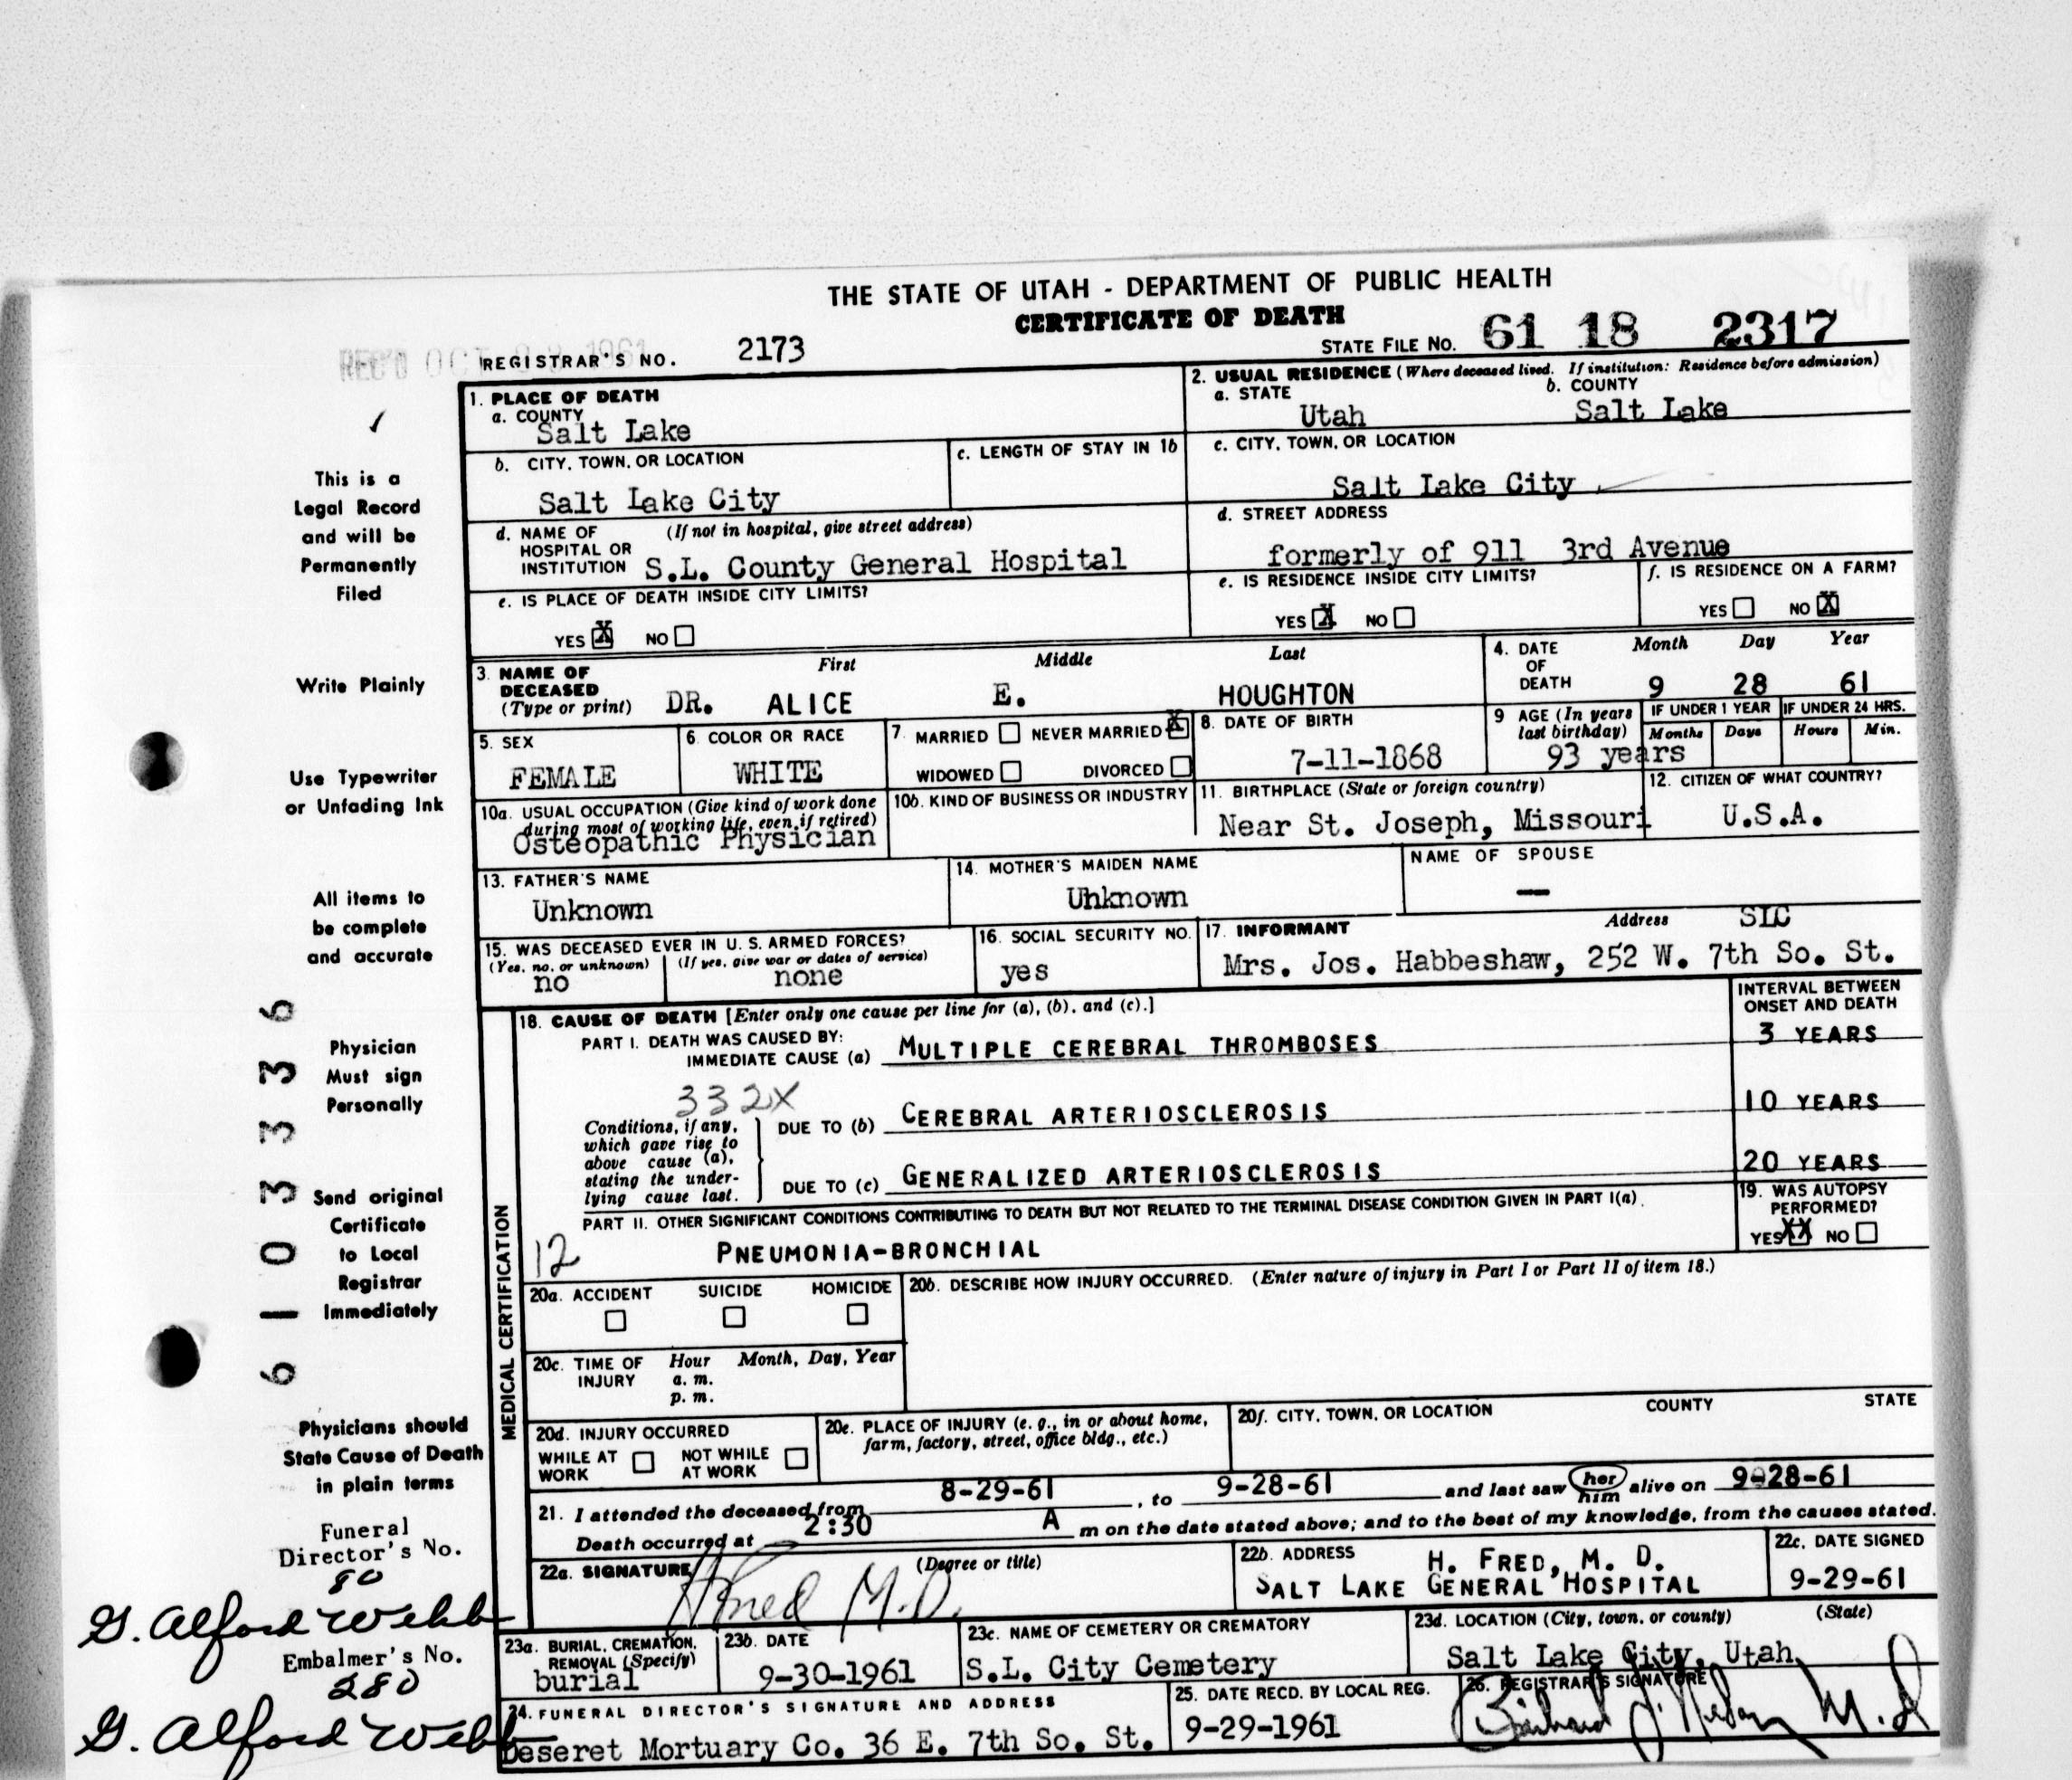 THE STATE OF UTAH - DEPARTMENT OF PUBLIC HEALTH
CERTIFICATE OF DEATH
REC'D OCT 1961
REGISTRAR'S NO. 2173
STATE FILE NO. 61 18 2317
1. PLACE OF DEATH
a. COUNTY
Salt Lake
2. USUAL RESIDENCE (Where deceased lived. If institution: Residence before admission)
a. STATE b. COUNTY
Utah Salt Lake
b. CITY, TOWN, OR LOCATION
Salt Lake City
c. LENGTH OF STAY IN 1b
c. CITY, TOWN, OR LOCATION
Salt Lake City
d. NAME OF (If not in hospital, give street address)
HOSPITAL OR
INSTITUTION S.L. County General Hospital
d. STREET ADDRESS
formerly of 911 3rd Avenue
e. IS PLACE OF DEATH INSIDE CITY LIMITS?
YES X NO
e. IS RESIDENCE INSIDE CITY LIMITS?
YES X NO
f. IS RESIDENCE ON A FARM?
YES NO X
3. NAME OF DECEASED (Type or print)
First Middle Last
DR. ALICE E. HOUGHTON
4. DATE OF DEATH
Month Day Year
9 28 61
5. SEX
FEMALE
6. COLOR OR RACE
WHITE
7. MARRIED NEVER MARRIED X
WIDOWED DIVORCED
8. DATE OF BIRTH
7-11-1868
9 AGE (In years
last birthday)
93 years
IF UNDER 1 YEAR IF UNDER 24 HRS.
Months Days Hours Min.
10a. USUAL OCCUPATION (Give kind of work done
during most of working life, even if retired)
Osteopathic Physician
10b. KIND OF BUSINESS OR INDUSTRY
11. BIRTHPLACE (State or foreign country)
Near St. Joseph, Missouri
12. CITIZEN OF WHAT COUNTRY?
U.S.A.
13. FATHER'S NAME
Unknown
14. MOTHER'S MAIDEN NAME
Unknown
NAME OF SPOUSE
—
15. WAS DECEASED EVER IN U. S. ARMED FORCES?
(Yes, no, or unknown) (If yes, give war or dates of service)
no none
16. SOCIAL SECURITY NO.
yes
17. INFORMANT Address SLC
Mrs. Jos. Habbeshaw, 252 W. 7th So. St.
MEDICAL CERTIFICATION
18. CAUSE OF DEATH [Enter only one cause per line for (a), (b), and (c).]
INTERVAL BETWEEN
ONSET AND DEATH
PART I. DEATH WAS CAUSED BY:
IMMEDIATE CAUSE (a) MULTIPLE CEREBRAL THROMBOSES 3 YEARS
332X
Conditions, if any,
which gave rise to
above cause (a),
stating the under-
lying cause last.
DUE TO (b) CEREBRAL ARTERIOSCLEROSIS 10 YEARS
DUE TO (c) GENERALIZED ARTERIOSCLEROSIS 20 YEARS
PART II. OTHER SIGNIFICANT CONDITIONS CONTRIBUTING TO DEATH BUT NOT RELATED TO THE TERMINAL DISEASE CONDITION GIVEN IN PART I(a).
12 PNEUMONIA-BRONCHIAL
19. WAS AUTOPSY
PERFORMED?
YES XX NO
20a. ACCIDENT SUICIDE HOMICIDE
20b. DESCRIBE HOW INJURY OCCURRED. (Enter nature of injury in Part I or Part II of item 18.)
20c. TIME OF INJURY
Hour Month, Day, Year
a. m.
p. m.
20d. INJURY OCCURRED
WHILE AT WORK NOT WHILE AT WORK
20e. PLACE OF INJURY (e. g., in or about home,
farm, factory, street, office bldg., etc.)
20f. CITY, TOWN, OR LOCATION COUNTY STATE
21. I attended the deceased from 8-29-61, to 9-28-61 and last saw her him alive on 9-28-61
Death occurred at 2:30 A m on the date stated above; and to the best of my knowledge, from the causes stated.
22a. SIGNATURE (Degree or title)
HFred M.D.
22b. ADDRESS H. FRED, M. D.
SALT LAKE GENERAL HOSPITAL
22c. DATE SIGNED
9-29-61
23a. BURIAL, CREMATION,
REMOVAL (Specify)
burial
23b. DATE
9-30-1961
23c. NAME OF CEMETERY OR CREMATORY
S.L. City Cemetery
23d. LOCATION (City, town, or county) (State)
Salt Lake City, Utah
24. FUNERAL DIRECTOR'S SIGNATURE AND ADDRESS
Deseret Mortuary Co. 36 E. 7th So. St.
25. DATE RECD. BY LOCAL REG.
9-29-1961
26. REGISTRAR'S SIGNATURE
M.D
This is a
Legal Record
and will be
Permanently
Filed
Write Plainly
Use Typewriter
or Unfading Ink
All items to
be complete
and accurate
Physician
Must sign
Personally
Send original
Certificate
to Local
Registrar
Immediately
6 1 0 3 3 3 6
Physicians should
State Cause of Death
in plain terms
Funeral
Director's No.
80
G. Alford Webb
Embalmer's No.
280
G. Alford Webb